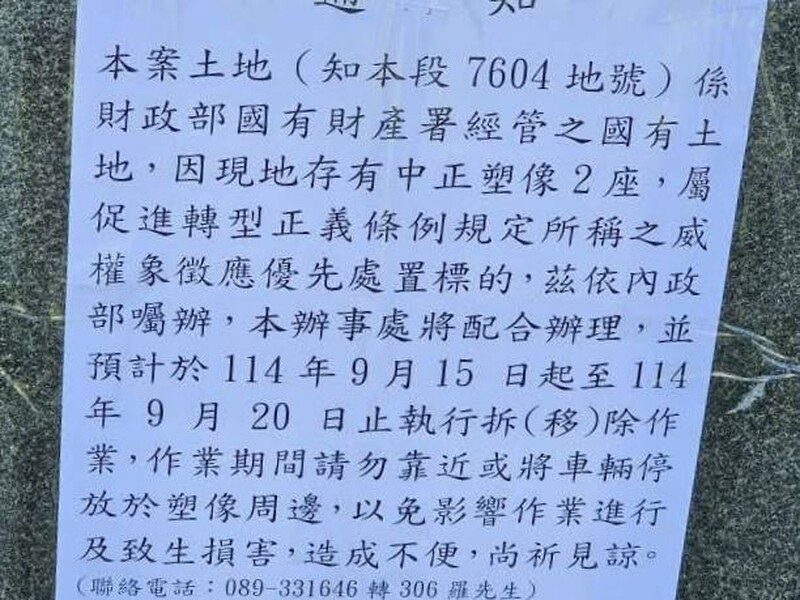 通知
本案土地（知本段 7604 地號）係
財政部國有財產署經管之國有土
地，因現地存有中正塑像 2 座，屬
促進轉型正義條例規定所稱之威
權象徵應優先處置標的，茲依內政
部囑辦，本辦事處將配合辦理，並
預計於 114 年 9 月 15 日起至 114
年 9 月 20 日止執行拆(移)除作
業，作業期間請勿靠近或將車輛停
放於塑像周邊，以免影響作業進行
及致生損害，造成不便，尚祈見諒。
（聯絡電話：089-331646 轉 306 羅先生）